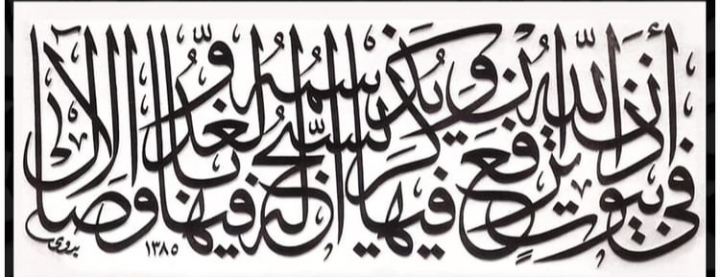 في بيوت أذن الله أن ترفع ويذكر فيها اسمه يسبح له فيها بالغدو والآصال
بدوي ١٣٨٥